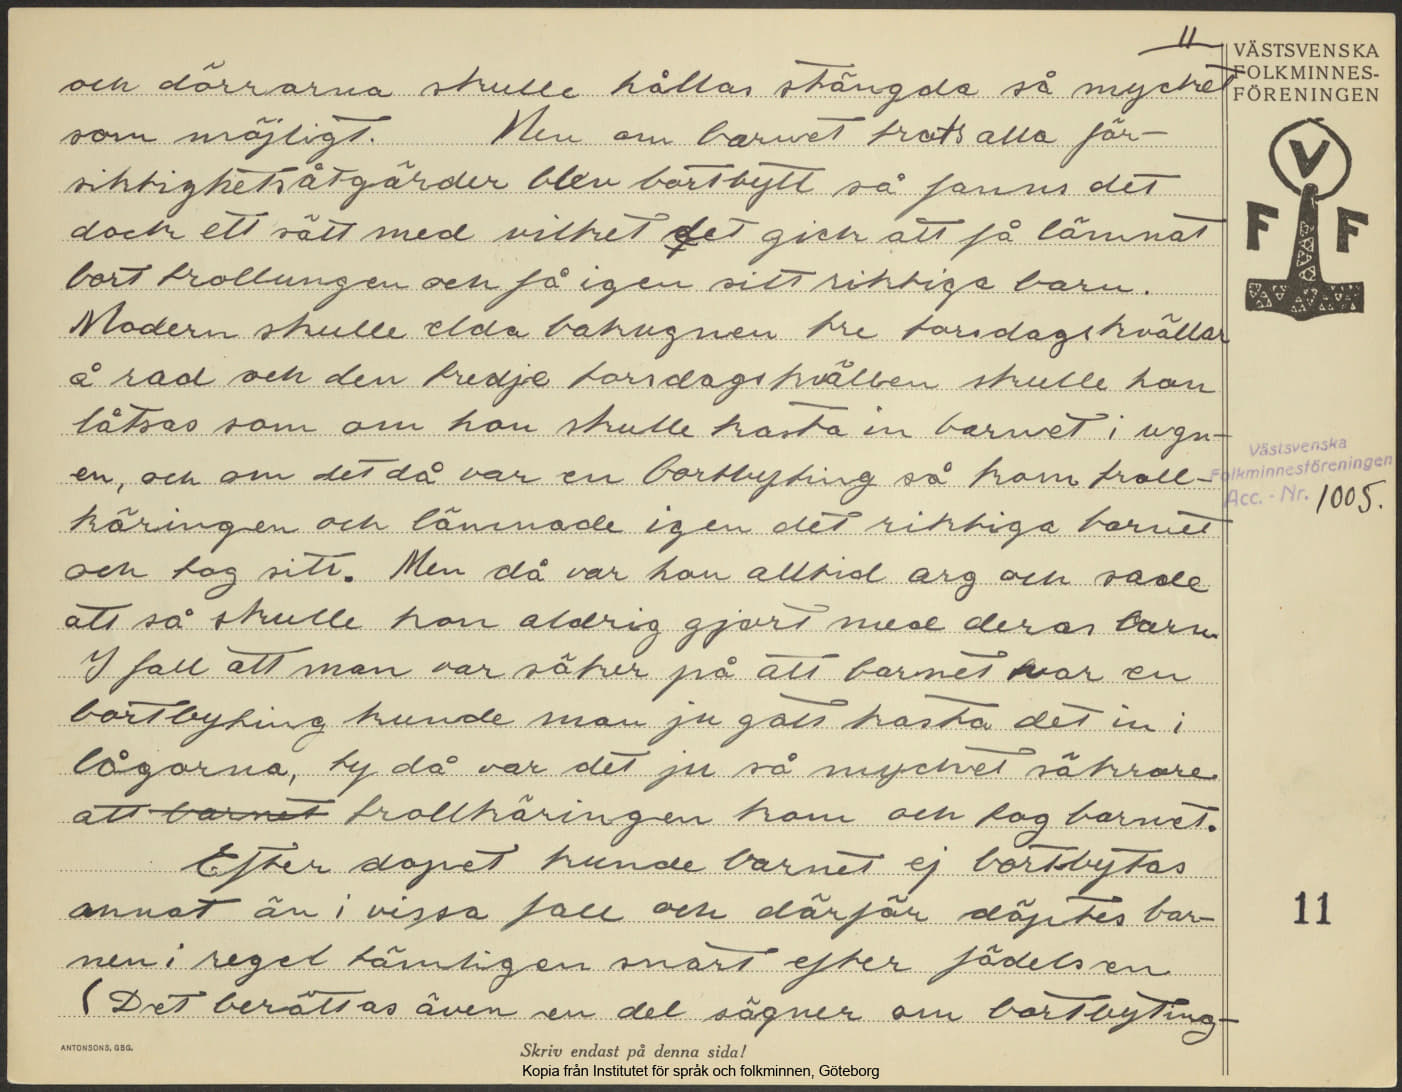 11
VÄSTSVENSKA
FOLKMINNES-
FÖRENINGEN
V
F F
och dörrarna skulle hållas stängda så mycket
som möjligt. Men om barnet trots alla för-
siktighetsåtgärder blev bortbytt så fanns det
dock ett sätt med vilket det gick att få lämnat
bort trollungen och få igen sitt riktiga barn.
Modern skulle elda bakugnen tre torsdagskvällar
å rad och den tredje torsdagskvällen skulle hon
låtsas som om hon skulle kasta in barnet i ugn-
en, och om det då var en bortbyting så kom troll-
käringen och lämnade igen det riktiga barnet
och tog sitt. Men då var hon alltid arg och sade
att så skulle hon aldrig gjort med deras barn.
I fall att man var säker på att barnet var en
bortbyting kunde man ju gott kasta det in i
lågorna, ty då var det ju så mycket säkrare
att barnet trollkäringen kom och tog barnet.
Efter dopet kunde barnet ej bortbytas
annat än i vissa fall och därför döptes bar-
nen i regel tämligen snart efter födelsen
(Det berättas även en del sägner om bortbyting-
Västsvenska
Folkminnesföreningen
Acc. - Nr. 1005.
11
ANTONSONS, GBG.
Skriv endast på denna sida!
Kopia från Institutet för språk och folkminnen, Göteborg